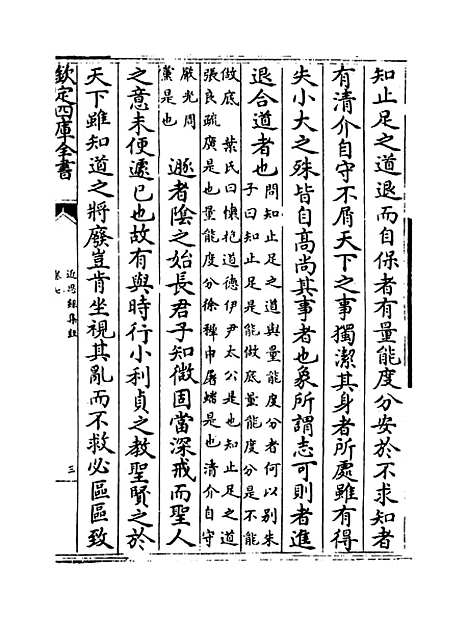 知止足之道退而自保者有量能度分安於不求知者
有清介自守不屑天下之事獨潔其身者所處雖有得
失小大之殊皆自高尚其事者也象所謂志可則者進
退合道者也問知止足之道與量能度分者何以别朱
子曰知止足是能做底量能度分是不能
做底　葉氏曰懐抱道德伊尹太公是也知止足之道
張良疏廣是也量能度分徐穉申屠蟠是也清介自守
嚴光周
黨是也　遯者陰之始長君子知微固當深戒而聖人
之意未便遽已也故有與時行小利貞之教聖賢之於
天下雖知道之將廢豈肯坐視其亂而不救必區區致
欽定四庫全書
近思録集註
卷七
三